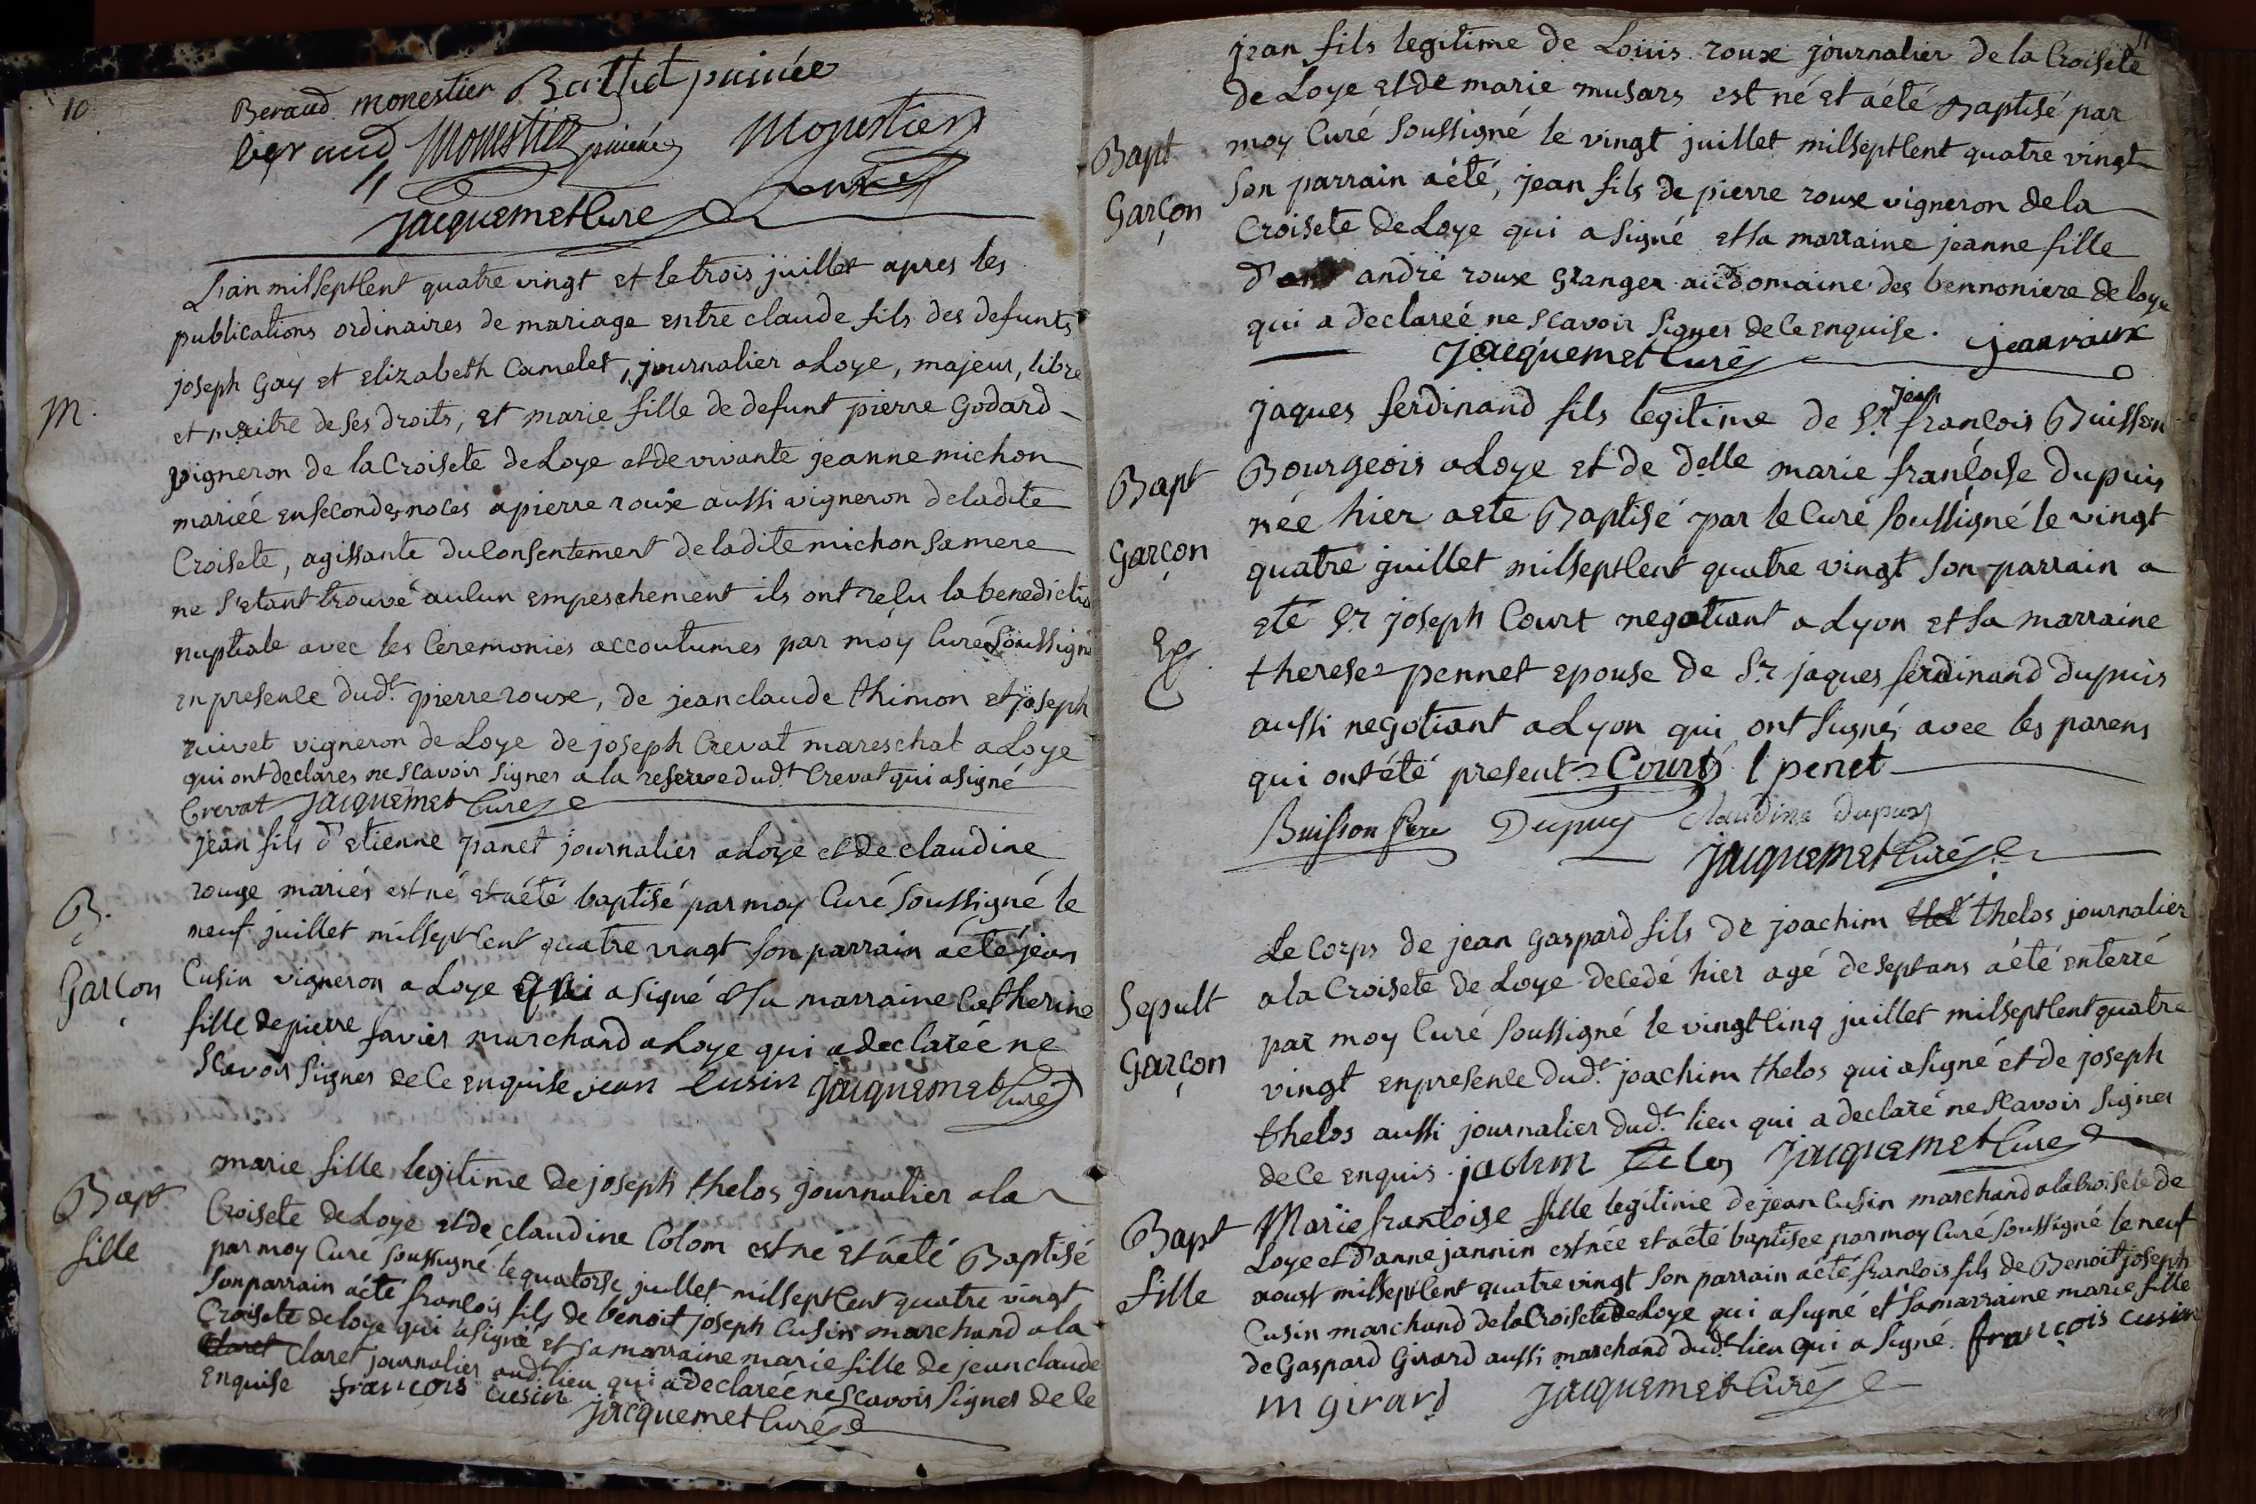 10
Beraud monestier
beraud monestier puinée monestier
jacquemet Curé
L'an mil sept Cent quatre vingt et le trois juillet apres les
publications ordinaires de mariage entre claude fils des defunts
M.
joseph Gay et Elizabeth Camelet, journalier a Loye, majeur, libre
et maitre de ses droits, et marie fille de defunt pierre Godard
vigneron de la Croisete de Loye et de vivante jeanne michon
mariéé en secondes noces a pierre roux aussi vigneron de ladite
Croisete, agissante du Consentement de ladite michon sa mere
ne s'etant trouvé auCun empeschement ils ont reçu la benediction
nuptiale avec les Ceremonies accoutumes par moy Curé soussigné
en presence dudt. pierre roux, de jean claude thimon et joseph
ruivet vigneron de Loye de joseph Crevat mareschal a Loye
qui ont declares ne scavoir signer a la reserve dudt Crevat qui a signé
Crevat jacquemet Curé
jean fils d'etienne panet journalier a Loye et de claudine
B.
Garçon
rouge mariés est né et a été baptisé par moy Curé soussigné le
neuf juillet mil sept Cent quatre vingt son parrain a été jean
Cusin vigneron a Loye qui a signé et sa marraine Catherine
fille de pierre favier marchand a Loye qui a declaréé ne
scavoir signer de Ce enquise jean cusin jacquemet Curé
Bapt
fille
marie fille legitime de joseph thelos journalier a la
Croisete de Loye et de claudine Colom est né et a été Baptisé
par moy Curé soussigné le quatorse juillet mil sept Cent quatre vingt
son parrain a été francois fils de benoit joseph Cusin marchand a la
Croisete de loye qui a signé et sa marraine marie fille de jean claude
Claret Claret journalier audt. lieu qui a declaréé ne scavoir signer de Ce
enquise francois cusin
jacquemet Curé
11
jean fils legitime de Louis roux journalier de la Croisete
de Loye et de marie musars est né et a été Baptisé par
Bapt
Garçon
moy Curé soussigné le vingt juillet mil sept Cent quatre vingt
son parrain a été, jean fils de pierre roux vigneron de la
Croisete de Loye qui a signé et sa marraine jeanne fille
d' andré roux Granger au domaine des bennoniere de loye
qui a declareé ne scavoir signer de Ce enquise. jean roux
jacquemet Curé
jaques ferdinand fils legitime de Sr. jean francois Buisson
Bapt
Garçon
Bourgeois a Loye et de delle marie francoise dupuis
née hier a ete Baptisé par le Curé soussigné le vingt
quatre juillet mil sept Cent quatre vingt son parrain a
eté Sr joseph Court negotiant a Lyon et sa marraine
Ex.
therese pennet epouse de Sr jaques ferdinand dupuis
aussi negotiant a Lyon qui ont signé, avec les parens
qui ont été present Court l penet
Buisson Pere Dupuy Claudine Dupuy
jacquemet Curé
Le Corps de jean Gaspard fils de joachim thel thelos journalier
Sepult
Garçon
a la Croisete de Loye decedé hier agé de sept ans a été enterré
par moy Curé soussigné le vingt Cinq juillet mil sept Cent quatre
vingt en presence dudt. joachim thelos qui a signé et de joseph
thelos aussi journalier dudt. lieu qui a declaré ne scavoir signer
de Ce enquis. jachim telos jacquemet Curé
Bapt
fille
Marie francoise fille legitime de jean Cusin marchand a la Croisete de
Loye et d'anne jannin est née et a été baptisée par moy Curé soussigné le neuf
aoust mil sept Cent quatre vingt son parrain a été francois fils de Benoit joseph
Cusin marchand de la Croisete de Loye qui a signé et sa marraine marie fille
de Gaspard Girard aussi marchand dudt. lieu qui a signé. françois cusin
m girard jacquemet Curé